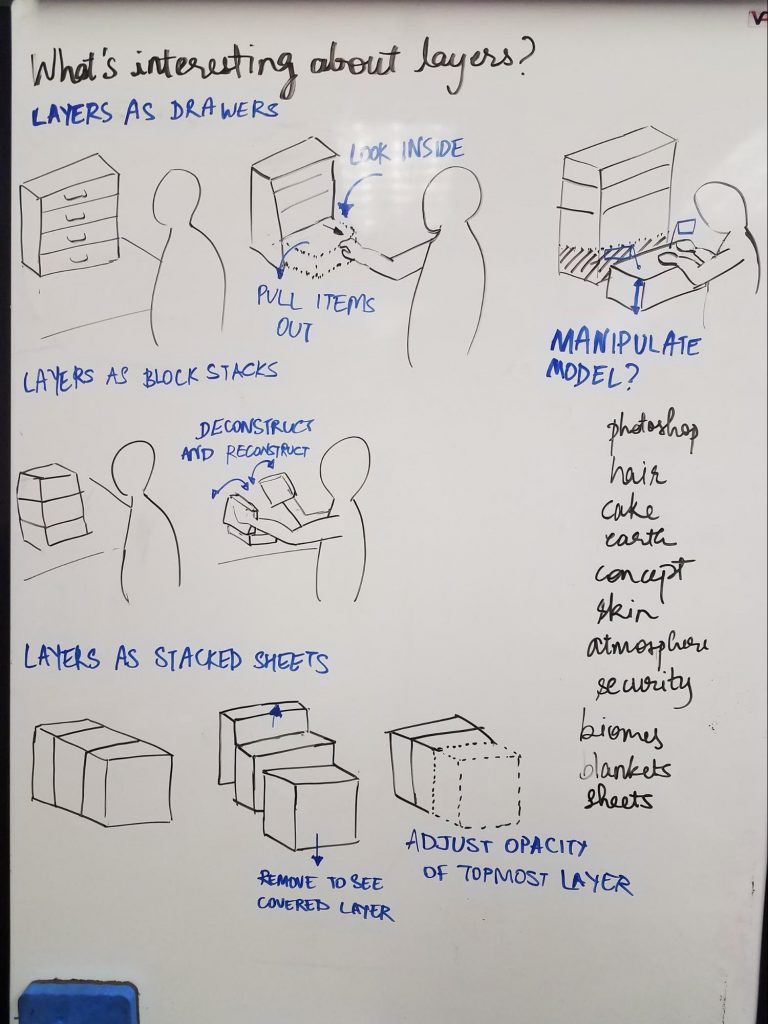 What's interesting about layers?
LAYERS AS DRAWERS
LOOK INSIDE
PULL ITEMS
OUT
MANIPULATE
MODEL?
LAYERS AS BLOCK STACKS
DECONSTRUCT
AND RECONSTRUCT
photoshop
hair
cake
earth
concept
skin
atmosphere
security
biomes
blankets
sheets
LAYERS AS STACKED SHEETS
REMOVE TO SEE
COVERED LAYER
ADJUST OPACITY
OF TOPMOST LAYER